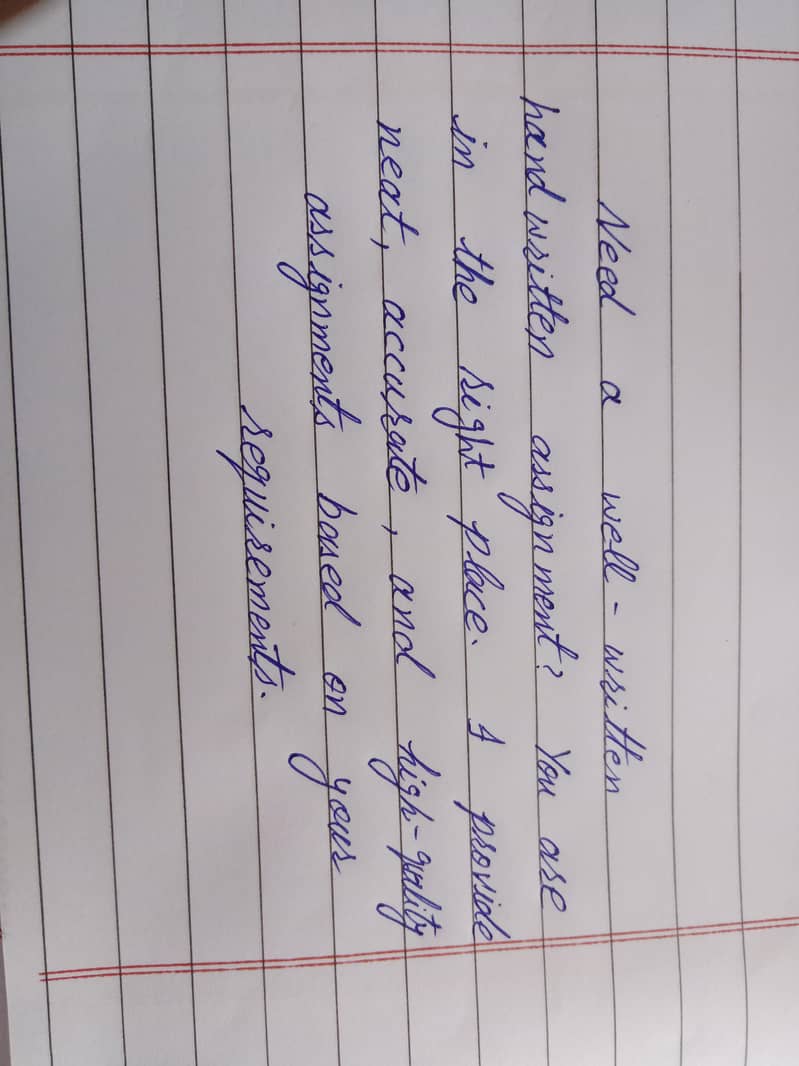 Need a well-written
handwritten assignment? You are
in the right place. I provide
neat, accurate, and high-quality
assignments based on your
requirements.